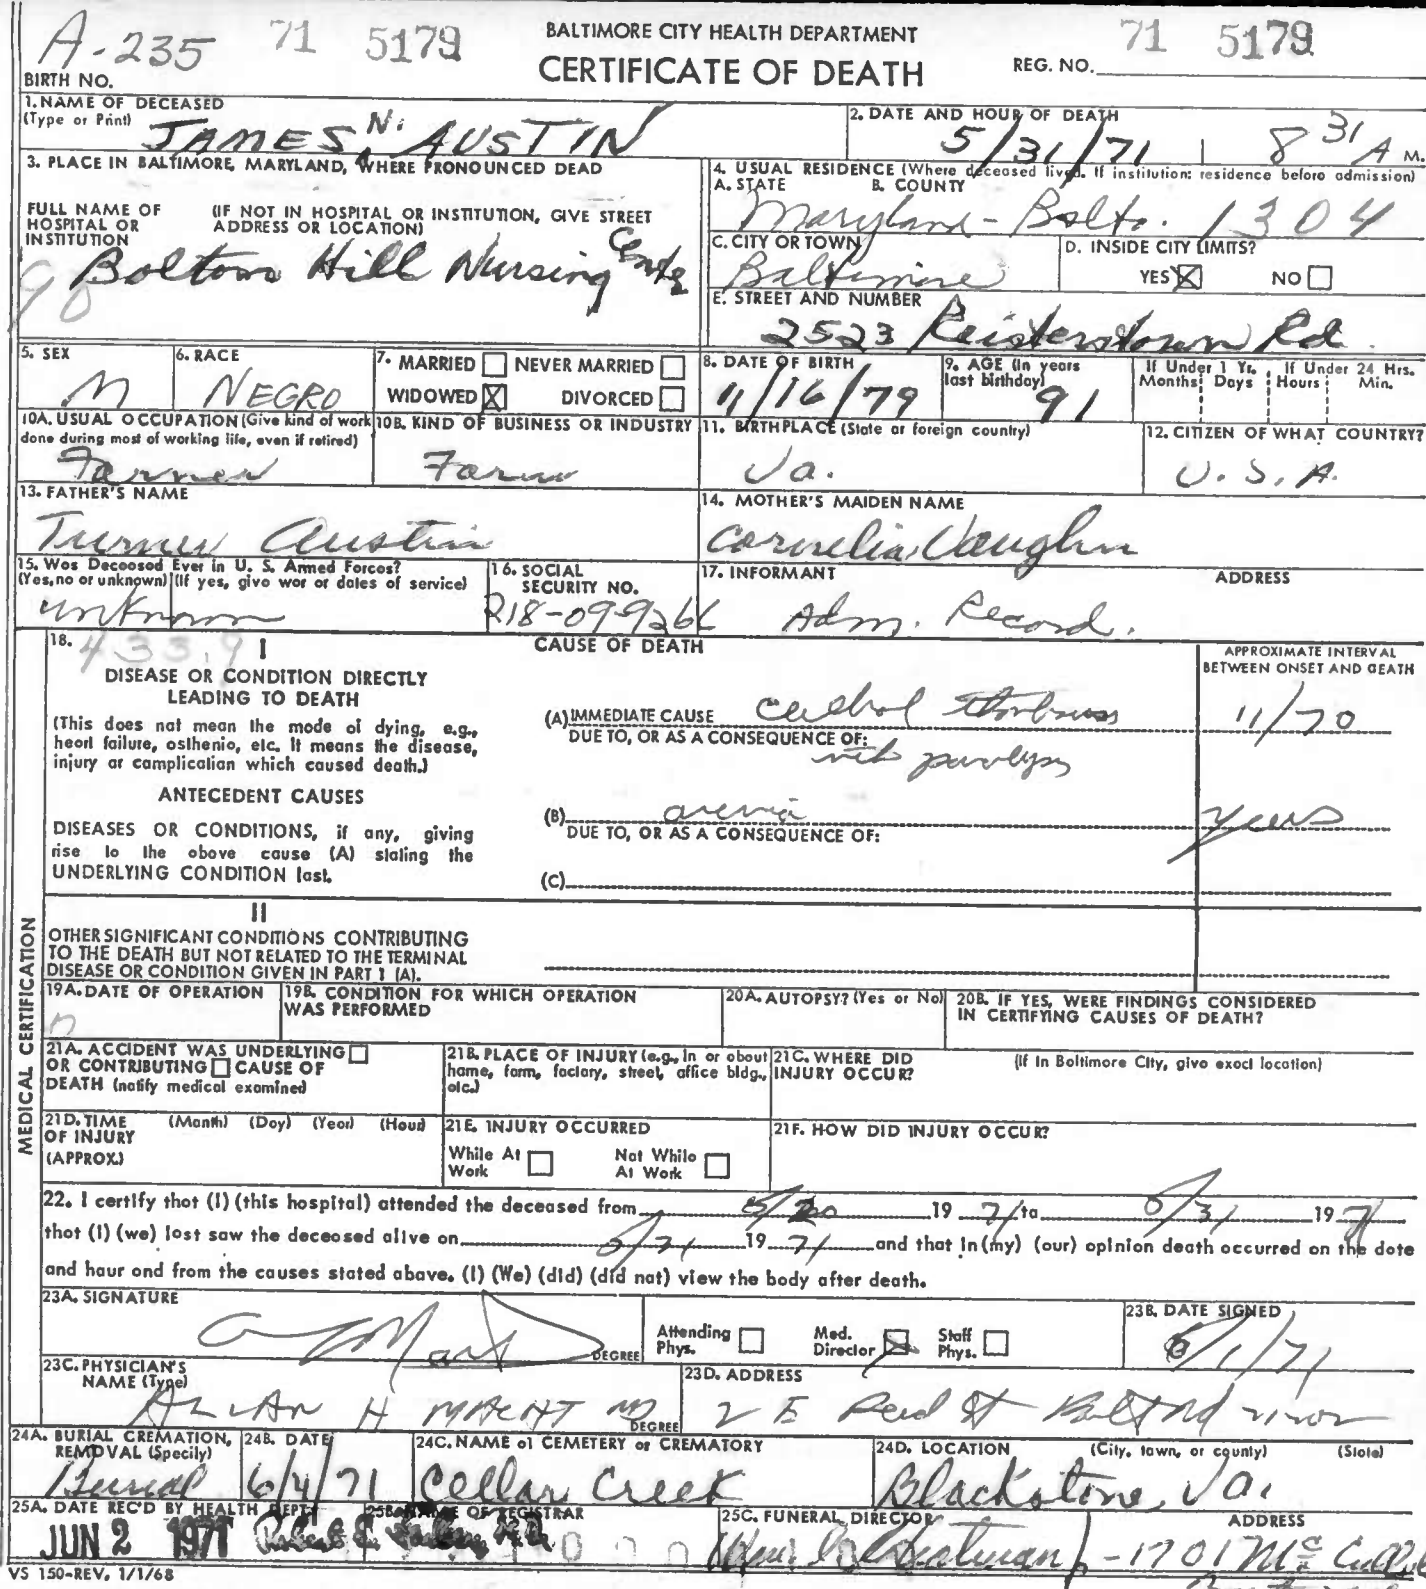 A-235 71 5179 BALTIMORE CITY HEALTH DEPARTMENT 71 5179
BIRTH NO. CERTIFICATE OF DEATH REG. NO.
1. NAME OF DECEASED
(Type or Print) JAMES N. AUSTIN
2. DATE AND HOUR OF DEATH
5/31/71 8 31 A M.
3. PLACE IN BALTIMORE, MARYLAND, WHERE PRONOUNCED DEAD
FULL NAME OF HOSPITAL OR INSTITUTION
(IF NOT IN HOSPITAL OR INSTITUTION, GIVE STREET ADDRESS OR LOCATION)
Bolton Hill Nursing Center
90
4. USUAL RESIDENCE (Where deceased lived. If institution: residence before admission)
A. STATE B. COUNTY
Maryland - Balto. 1304
C. CITY OR TOWN
Baltimore
D. INSIDE CITY LIMITS?
YES NO
E. STREET AND NUMBER
2523 Reisterstown Rd.
5. SEX
M
6. RACE
NEGRO
7. MARRIED NEVER MARRIED
WIDOWED DIVORCED
8. DATE OF BIRTH
11/16/79
9. AGE (In years last birthday)
91
If Under 1 Yr. If Under 24 Hrs.
Months Days Hours Min.
10A. USUAL OCCUPATION (Give kind of work
done during most of working life, even if retired)
Farmer
10B. KIND OF BUSINESS OR INDUSTRY
Farm
11. BIRTHPLACE (State or foreign country)
Va.
12. CITIZEN OF WHAT COUNTRY?
U.S.A.
13. FATHER'S NAME
Turner Austin
14. MOTHER'S MAIDEN NAME
Cornelia Vaughn
15. Was Deceased Ever in U. S. Armed Forces?
(Yes, no or unknown) (If yes, give war or dates of service)
unknown
16. SOCIAL SECURITY NO.
218-09-9266
17. INFORMANT ADDRESS
Adm. Record.
MEDICAL CERTIFICATION
18. 433.9 I
CAUSE OF DEATH
APPROXIMATE INTERVAL
BETWEEN ONSET AND DEATH
DISEASE OR CONDITION DIRECTLY
LEADING TO DEATH
(This does not mean the mode of dying, e.g.,
heart failure, asthenia, etc. It means the disease,
injury or complication which caused death.)
(A) IMMEDIATE CAUSE cerebral thrombosis 11/70
DUE TO, OR AS A CONSEQUENCE OF:
with paralysis
ANTECEDENT CAUSES
DISEASES OR CONDITIONS, if any, giving
rise to the above cause (A) stating the
UNDERLYING CONDITION last.
(B) years
DUE TO, OR AS A CONSEQUENCE OF:
(C)
II
OTHER SIGNIFICANT CONDITIONS CONTRIBUTING
TO THE DEATH BUT NOT RELATED TO THE TERMINAL
DISEASE OR CONDITION GIVEN IN PART 1 (A).
19A. DATE OF OPERATION
19B. CONDITION FOR WHICH OPERATION
WAS PERFORMED
20A. AUTOPSY? (Yes or No)
20B. IF YES, WERE FINDINGS CONSIDERED
IN CERTIFYING CAUSES OF DEATH?
21A. ACCIDENT WAS UNDERLYING
OR CONTRIBUTING CAUSE OF
DEATH (notify medical examiner)
21B. PLACE OF INJURY (e.g., in or about
home, farm, factory, street, office bldg.,
etc.)
21C. WHERE DID (If in Baltimore City, give exact location)
INJURY OCCUR?
21D. TIME (Month) (Day) (Year) (Hour)
OF INJURY
(APPROX.)
21E. INJURY OCCURRED
While At Work Not While At Work
21F. HOW DID INJURY OCCUR?
22. I certify that (I) (this hospital) attended the deceased from 5/20 19 71 to 5/31 19 71
that (I) (we) last saw the deceased alive on 5/31 19 71 and that in (my) (our) opinion death occurred on the date
and hour and from the causes stated above. (I) (We) (did) (did not) view the body after death.
23A. SIGNATURE
DEGREE
Attending Phys. Med. Director Staff Phys.
23B. DATE SIGNED
6/1/71
23C. PHYSICIAN'S
NAME (Type)
ALLAN H MACHT MD
DEGREE
23D. ADDRESS
2 E Read St Balt Md 21202
24A. BURIAL CREMATION,
REMOVAL (Specify)
Burial
24B. DATE
6/4/71
24C. NAME of CEMETERY or CREMATORY
Cellar Creek
24D. LOCATION (City, town, or county) (State)
Blackstone, Va.
25A. DATE REC'D BY HEALTH DEPT.
JUN 2 1971
25B. NAME OF REGISTRAR
25C. FUNERAL DIRECTOR ADDRESS
1701 McCull
VS 150-REV. 1/1/68